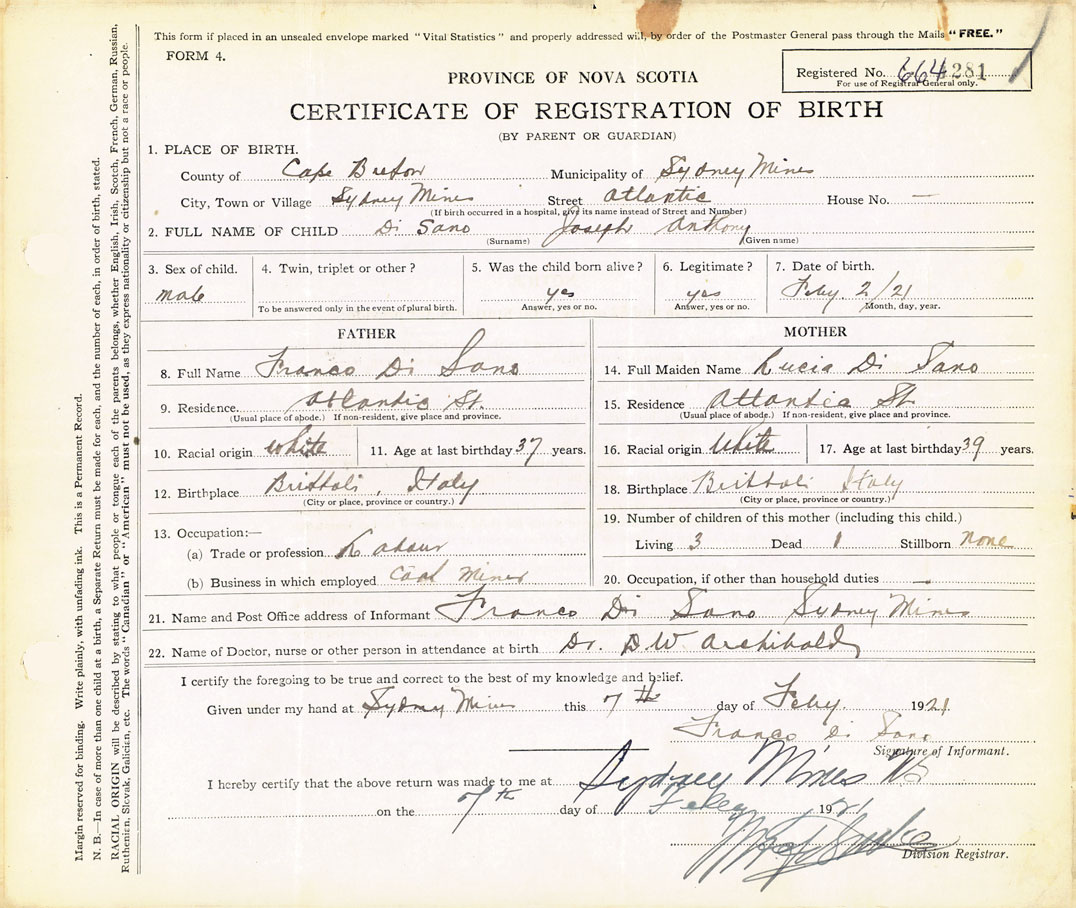 This form if placed in an unsealed envelope marked "Vital Statistics" and properly addressed will, by order of the Postmaster General pass through the Mails "FREE."
FORM 4.
Registered No. 664 281
For use of Registrar General only.
PROVINCE OF NOVA SCOTIA
CERTIFICATE OF REGISTRATION OF BIRTH
(BY PARENT OR GUARDIAN)
1. PLACE OF BIRTH.
County of Cape Breton Municipality of Sydney Mines
City, Town or Village Sydney Mines Street Atlantic House No. —
(If birth occurred in a hospital, give its name instead of Street and Number)
2. FULL NAME OF CHILD Di Sano Joseph Anthony
(Surname) (Given name)
3. Sex of child. 4. Twin, triplet or other? 5. Was the child born alive? 6. Legitimate? 7. Date of birth.
male yes yes Feby. 2/21
To be answered only in the event of plural birth. Answer, yes or no. Answer, yes or no. Month, day, year.
FATHER
8. Full Name Franco Di Sano
9. Residence. Atlantic St.
(Usual place of abode.) If non-resident, give place and province.
10. Racial origin white 11. Age at last birthday 37 years.
12. Birthplace Brittoli, Italy
(City or place, province or country.)
13. Occupation:—
(a) Trade or profession Labour
(b) Business in which employed Coal Mines
MOTHER
14. Full Maiden Name Lucia Di Sano
15. Residence Atlantic St.
(Usual place of abode.) If non-resident, give place and province.
16. Racial origin White 17. Age at last birthday 39 years.
18. Birthplace Brittoli Italy
(City or place, province or country.)
19. Number of children of this mother (including this child.)
Living 3 Dead 1 Stillborn none
20. Occupation, if other than household duties —
21. Name and Post Office address of Informant Franco Di Sano Sydney Mines
22. Name of Doctor, nurse or other person in attendance at birth Dr. D W Archibald
I certify the foregoing to be true and correct to the best of my knowledge and belief.
Given under my hand at Sydney Mines this 7th day of Feby. 1921
Franco Di Sano
Signature of Informant.
I hereby certify that the above return was made to me at Sydney Mines
on the 7th day of Feby 1921
Division Registrar.
Margin reserved for binding. Write plainly, with unfading ink. This is a Permanent Record.
N. B.—In case of more than one child at a birth, a Separate Return must be made for each, and the number of each, in order of birth, stated.
RACIAL ORIGIN will be described by stating to what people or tongue each of the parents belongs, whether English, Irish, Scotch, French, German, Russian,
Ruthenian, Slovak, Galician, etc. The words "Canadian" or "American" must not be used, as they express nationality or citizenship but not a race or people.